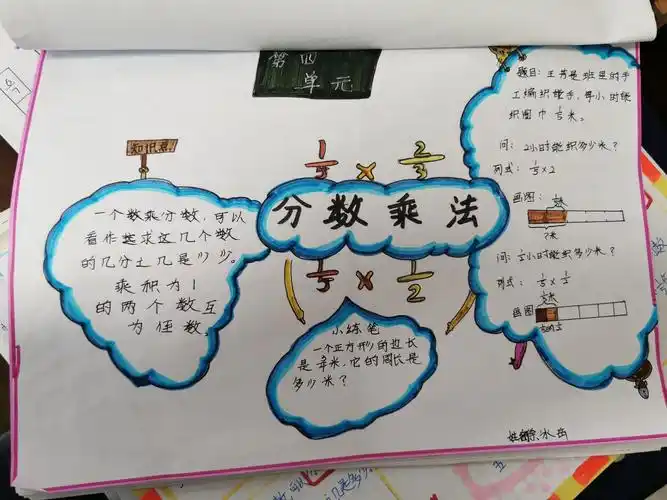 第四
单元
知识点
一个数乘分数,可以
看作是求这几个数
的几分之几是多少。
乘积为1
的两个数互
为倒数。
1/5 × 2/3
分数乘法
1/5 × 1/2
小练笔
一个正方形的边长
是 米,它的周长是
多少米?
题目:王芳是班里的手
工编织能手,每小时能
织围巾1/5米。
问:2小时能织多少米?
列式:1/5×2
画图:
?米
问:1/2小时能织多少米?
列式:1/5×1/2
画图
姓名 冰岳